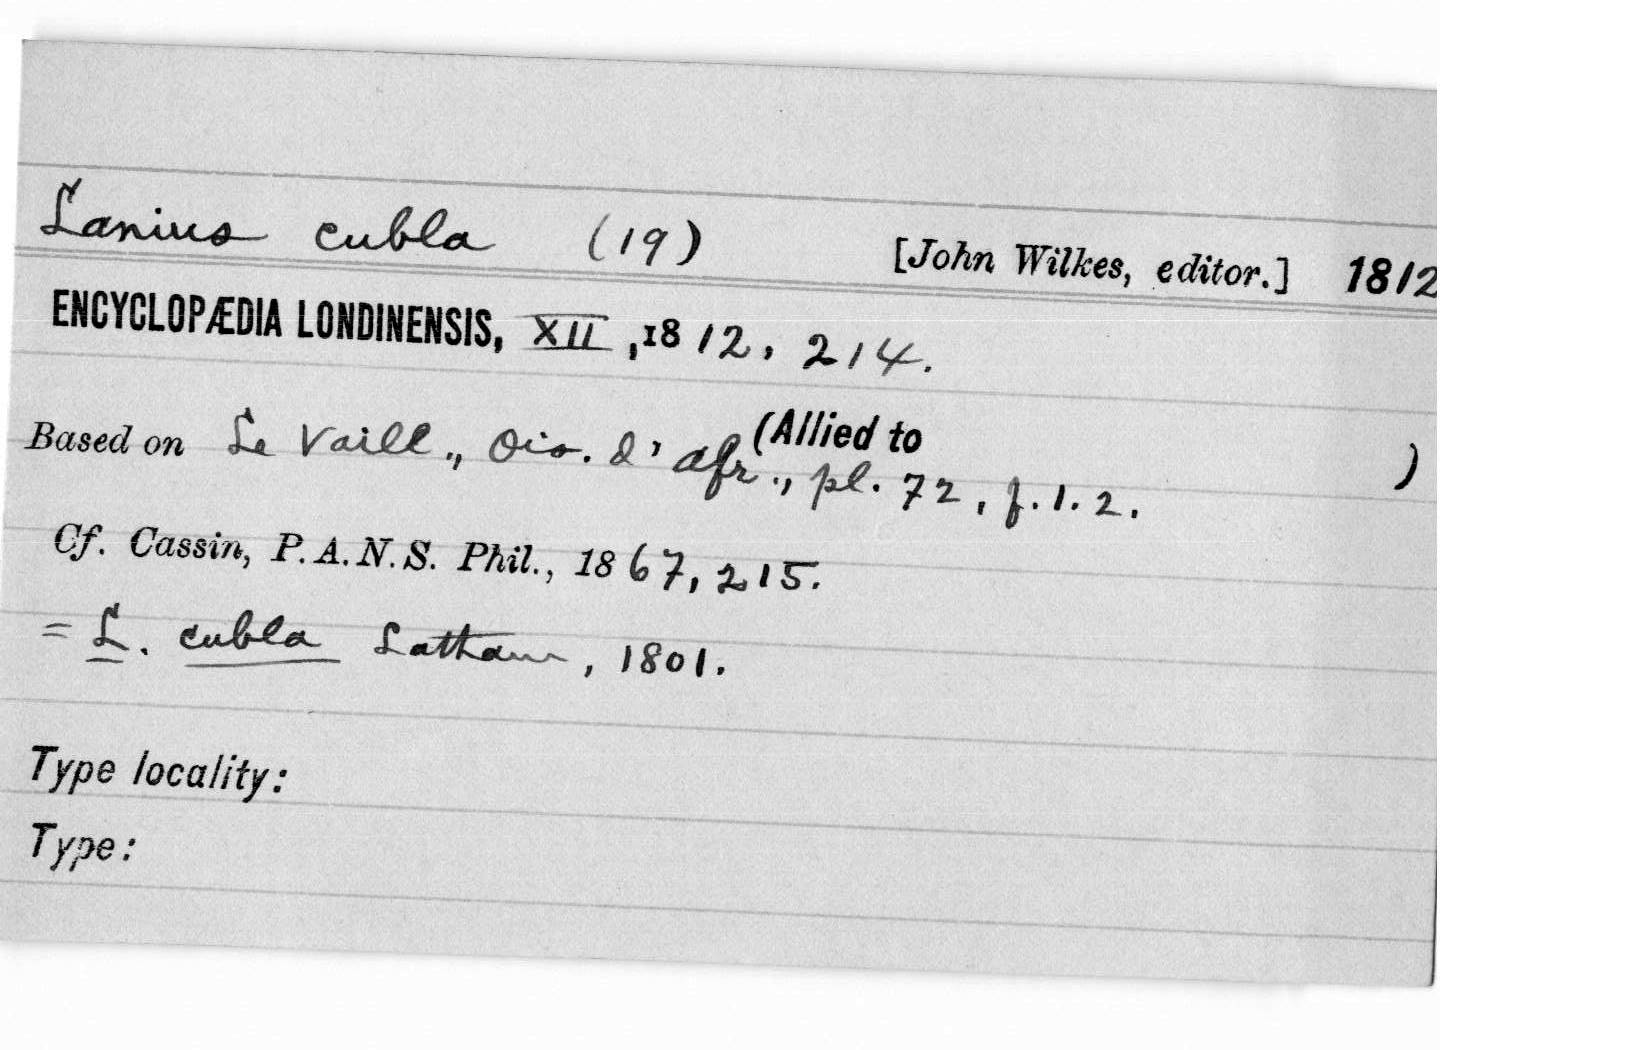 Lanius cubla (19) [John Wilkes, editor.] 1812
ENCYCLOPÆDIA LONDINENSIS, XII, 1812, 214.
(Allied to )
Based on Le Vaill., Ois. d'Afr., pl. 72, f. 1. 2.
Cf. Cassin, P. A. N. S. Phil., 1867, 215.
= L. cubla Latham, 1801.
Type locality:
Type: